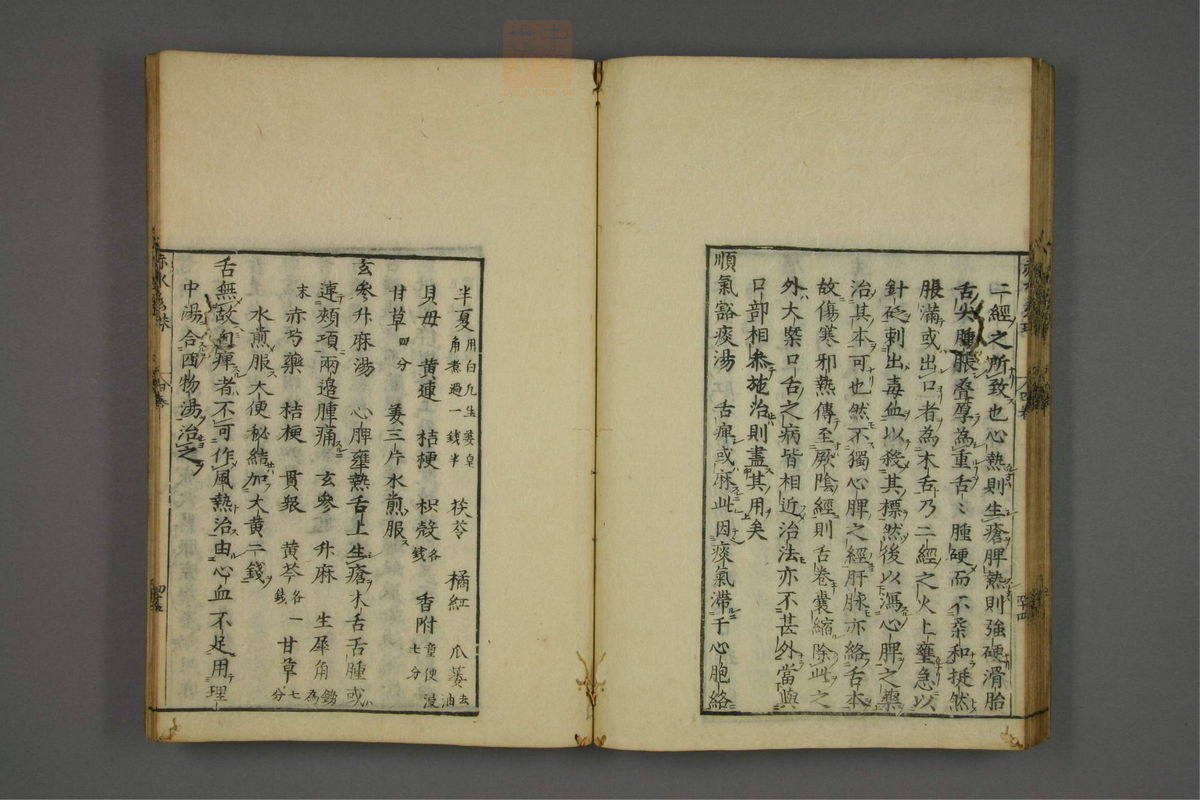 二經之所致也心熱則生瘡脾熱則強硬滑胎
舌尖腫脹疊厚為重舌〻腫硬而不柔和挺然
脹滿或出口者為木舌乃二經之火上壅急以
針砭刺出毒血以殺其標然後以瀉心脾之藥
治其本可也然不獨心脾之經肝脉亦絡舌本
故傷寒邪熱傳至厥陰經則舌卷囊縮除此之
外大槩口舌之病皆相近治法亦不甚外當與
口部相叅施治則盡其用矣
順氣豁痰湯 舌痺或麻此因痰氣滯于心胞絡
半夏 用白九生薑皂角煮過一錢半 茯苓 橘紅 瓜蔞 去油
貝母 黃連 桔梗 枳殼 各錢 香附 童便浸七分
甘草 四分 薑三片水煎服
玄參升麻湯 心脾壅熱舌上生瘡木舌舌腫或
連頰項兩邉腫痛 玄參 升麻 生犀角 鎊為末
赤芍藥 桔梗 貫眾 黃芩 各一錢 甘草 七分
水煎服大便秘結加大黃二錢
舌無故自痺者不可作風熱治由心血不足用理
中湯合四物湯治之
赤水玄珠
四十五
四十四